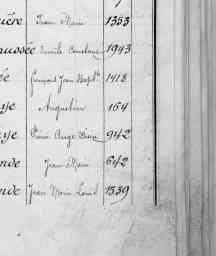 ière Jean Marie 1353
aussée Emile Constant 1943
ée François Jean Bapte 1418
ye Augustin 164
ye Pierre Ange 942
nde Jean Marie 642
nde Jean Marie Louis 1539